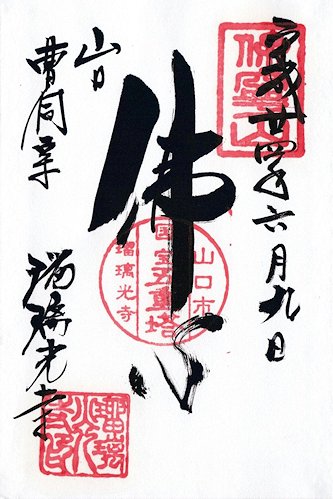 平成廿四年六月九日
佛心
山口市
国宝五重塔
瑠璃光寺
山口
曹洞宗
瑠璃光寺